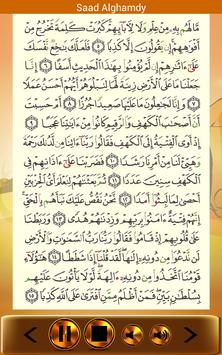 Saad Alghamdy
مَّا لَهُم بِهِۦ مِنْ عِلْمٍ وَلَا لِأَبَآئِهِمْ ۚ كَبُرَتْ كَلِمَةً تَخْرُجُ مِنْ
أَفْوَٰهِهِمْ ۚ إِن يَقُولُونَ إِلَّا كَذِبًا ٥ فَلَعَلَّكَ بَٰخِعٌ نَّفْسَكَ
عَلَىٰٓ ءَاثَٰرِهِمْ إِن لَّمْ يُؤْمِنُوا۟ بِهَٰذَا ٱلْحَدِيثِ أَسَفًا ٦ إِنَّا
جَعَلْنَا مَا عَلَى ٱلْأَرْضِ زِينَةً لَّهَا لِنَبْلُوَهُمْ أَيُّهُمْ أَحْسَنُ عَمَلًا
٧ وَإِنَّا لَجَٰعِلُونَ مَا عَلَيْهَا صَعِيدًا جُرُزًا ٨ أَمْ حَسِبْتَ أَنَّ
أَصْحَٰبَ ٱلْكَهْفِ وَٱلرَّقِيمِ كَانُوا۟ مِنْ ءَايَٰتِنَا عَجَبًا ٩
إِذْ أَوَى ٱلْفِتْيَةُ إِلَى ٱلْكَهْفِ فَقَالُوا۟ رَبَّنَآ ءَاتِنَا مِن لَّدُنكَ رَحْمَةً
وَهَيِّئْ لَنَا مِنْ أَمْرِنَا رَشَدًا ١٠ فَضَرَبْنَا عَلَىٰٓ ءَاذَانِهِمْ
فِى ٱلْكَهْفِ سِنِينَ عَدَدًا ١١ ثُمَّ بَعَثْنَٰهُمْ لِنَعْلَمَ أَىُّ ٱلْحِزْبَيْنِ
أَحْصَىٰ لِمَا لَبِثُوٓا۟ أَمَدًا ١٢ نَّحْنُ نَقُصُّ عَلَيْكَ نَبَأَهُم بِٱلْحَقِّ ۚ
إِنَّهُمْ فِتْيَةٌ ءَامَنُوا۟ بِرَبِّهِمْ وَزِدْنَٰهُمْ هُدًى ١٣ وَرَبَطْنَا
عَلَىٰ قُلُوبِهِمْ إِذْ قَامُوا۟ فَقَالُوا۟ رَبُّنَا رَبُّ ٱلسَّمَٰوَٰتِ وَٱلْأَرْضِ
لَن نَّدْعُوَا۟ مِن دُونِهِۦٓ إِلَٰهًا ۖ لَّقَدْ قُلْنَآ إِذًا شَطَطًا ١٤
هَٰٓؤُلَآءِ قَوْمُنَا ٱتَّخَذُوا۟ مِن دُونِهِۦٓ ءَالِهَةً ۖ لَّوْلَا يَأْتُونَ عَلَيْهِم
بِسُلْطَٰنٍۭ بَيِّنٍ ۖ فَمَنْ أَظْلَمُ مِمَّنِ ٱفْتَرَىٰ عَلَى ٱللَّهِ كَذِبًا ١٥